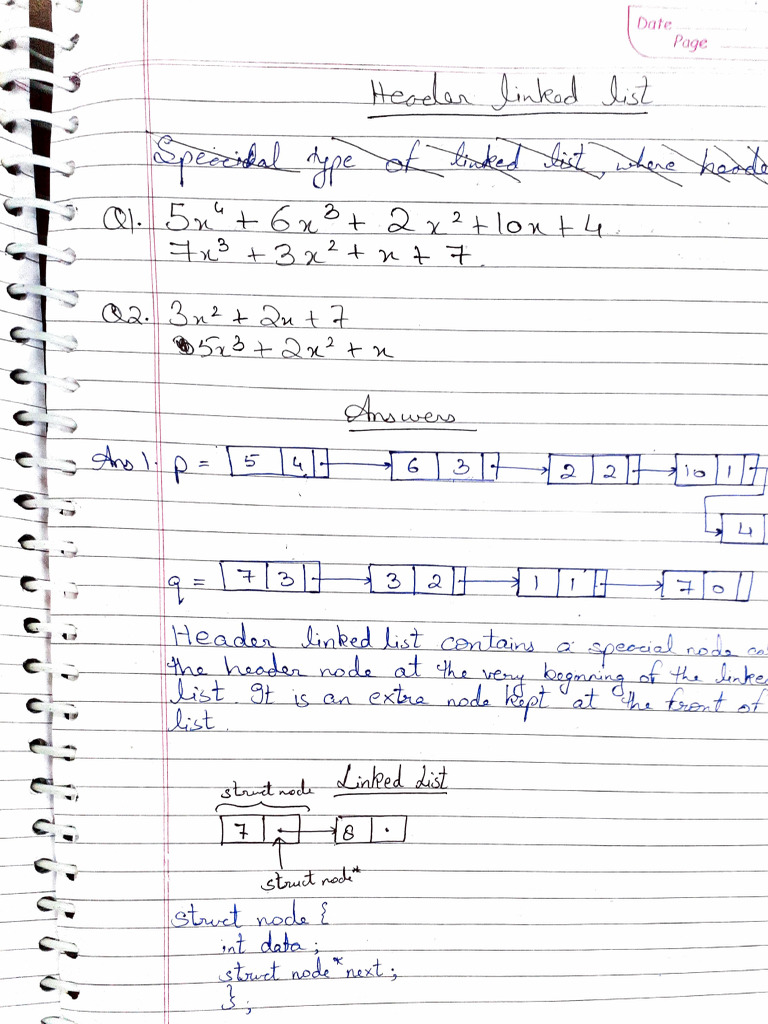 Date
Page
Header linked list
Speocidal type of linked list, where heade
Q1. 5x⁴ + 6x³ + 2x² + 10x + 4
7x³ + 3x² + x + 7
Q2. 3x² + 2x + 7
5x³ + 2x² + x
Answers
Ans 1. p = 5 4 6 3 2 2 10 1
4
q = 7 3 3 2 1 1 7 0
Header linked list contains a speocial node ca
the header node at the very beginning of the linke
list. It is an extra node kept at the front of
list.
struct node Linked List
7 8 .
struct node*
struct node {
int data;
struct node* next;
};